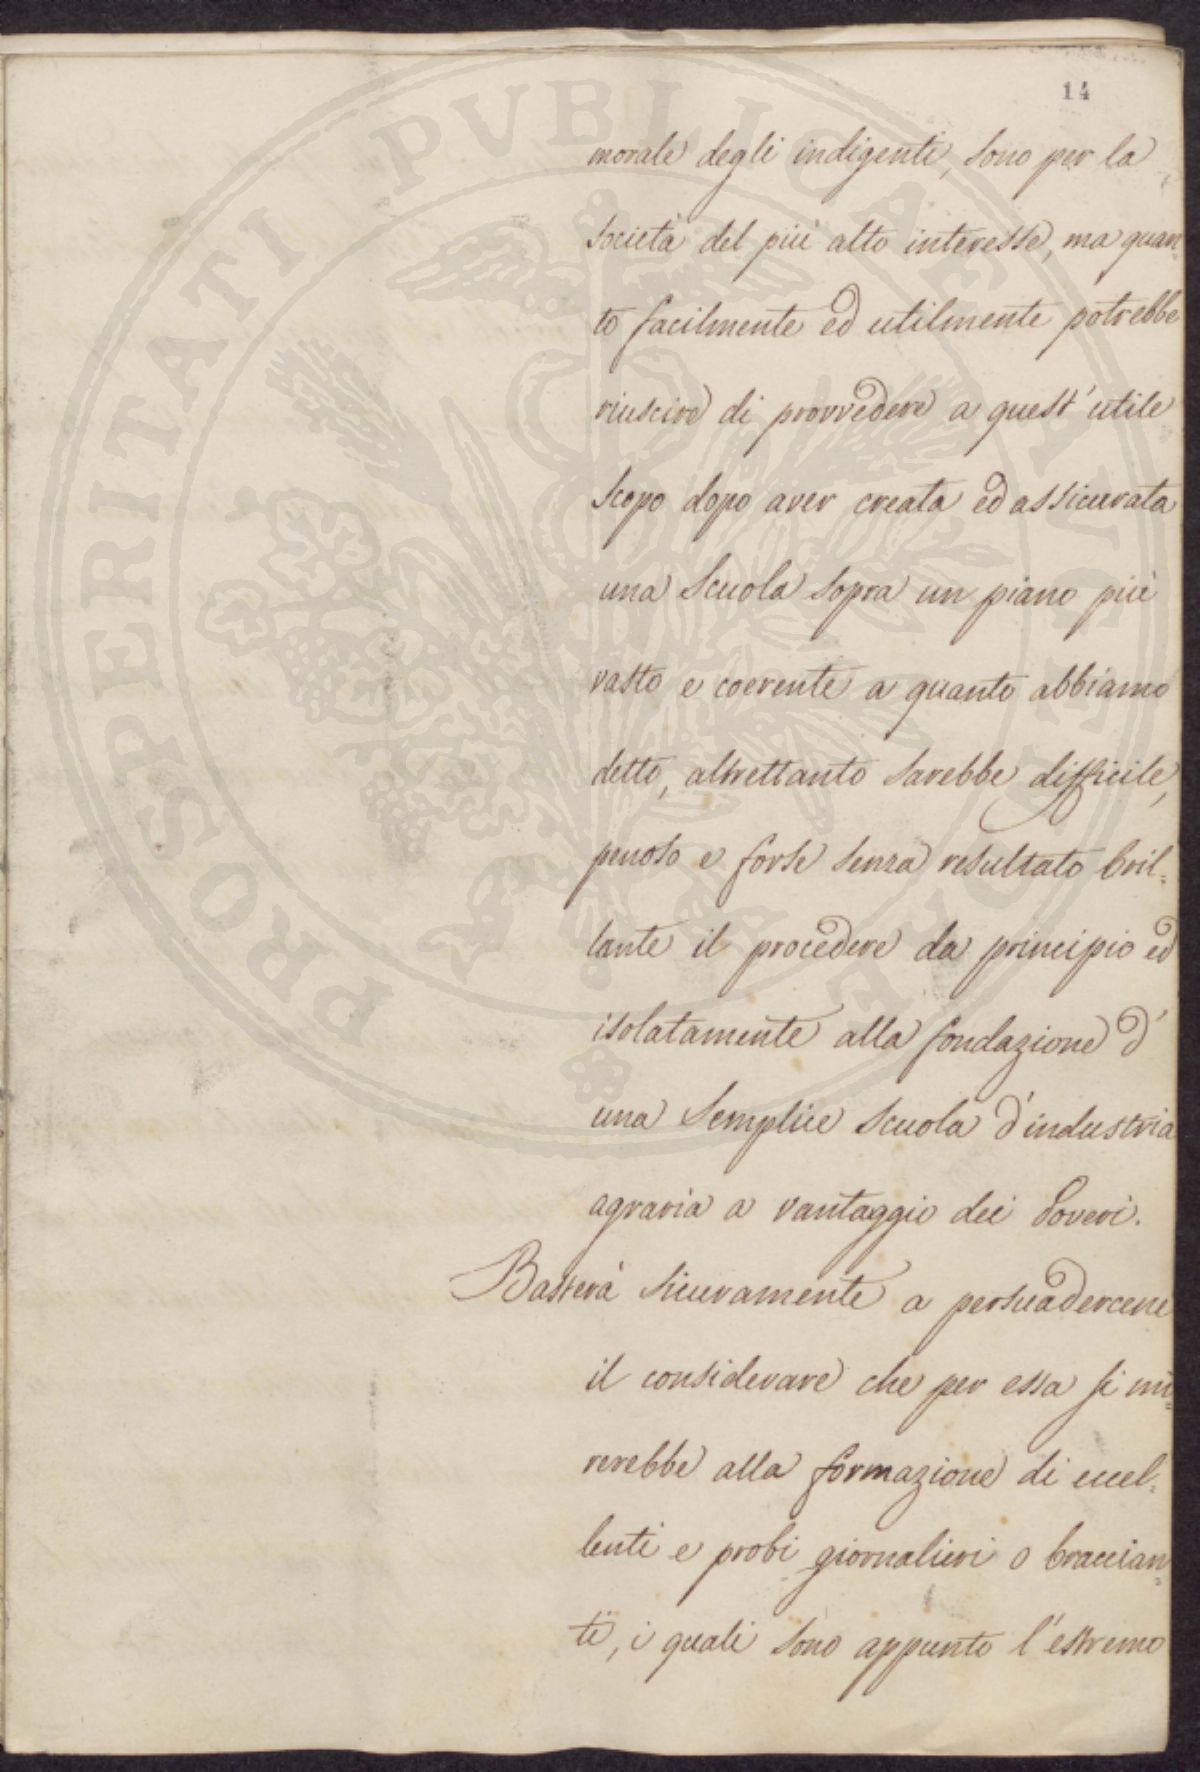 14
morale degli indigenti, sono per la
società del più alto interesse, ma quan=
to facilmente ed utilmente potrebbe
riuscire di provvedere a quest'utile
scopo dopo aver creata ed assicurata
una Scuola sopra un piano più
vasto e coerente a quanto abbiamo
detto, altrettanto sarebbe difficile,
penoso e forse senza resultato bril=
lante il procedere da principio ed
isolatamente alla fondazione d'
una semplice scuola d'industria
agraria a vantaggio dei Poveri.
Basterà sicuramente a persuadercene
il considerare che per essa si mi=
rerebbe alla formazione di eccel=
lenti e probi giornalieri o braccian=
ti, i quali sono appunto l'estremo
PROSPERITATI PUBLICAE AUGENDAE